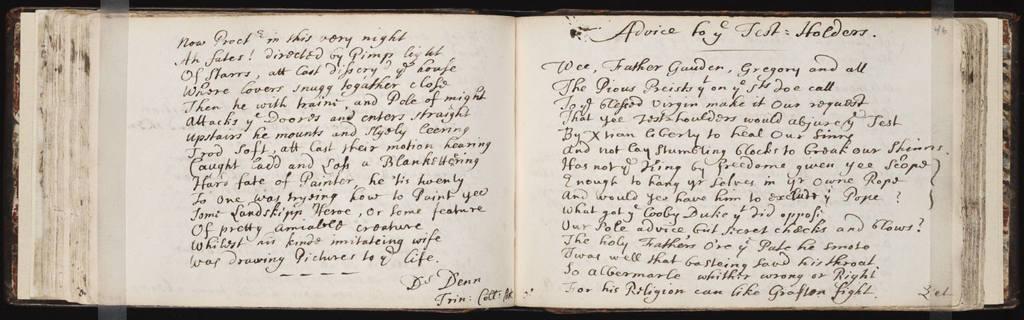 Now Proct^r in this very night
Ah fates! directed by Pimp light
Of Starrs, att last discry y^e house
Where lovers snugg together close
Then he with traine and Pole of might
Attacks y^e Doores and enters straight
Upstairs he mounts and slyely leering
Trod soft, att last their motion hearing
Caught Ladd and Lass a Blankettering
Hard fate of Painter, he 'tis twenty
To one was trying how to Paint yee
Some Landskipp Heroe, or some feature
Of pretty amiable creature
Whilest his kinde imitateing wife
Was drawing Pictures to y^e life.
D^s Denn
Trin: Coll:
46
Advice to y^e Test=Holders.
Wee, Father Gauden, Gregory and all
The Pious Preists y^t on y^e S^ts doe call
To y^e blessed Virgin make it Our request
That yee Testhoulders would abjure y^e Test
By Xtian liberty to heal Our Sinns
And not lay stumbling blocks to break our Shinns
Has not y^e King by freedome given yee Scope
Enough to hang y^r selves in y^r Owne Rope
And would yee have him to exclude y^e Pope?
What got y^e Cooby Duke y^t did oppose
Our Pole advice but secret checks and blows?
The holy Fathers O're y^e Pate he smote
Twas well that basteing savd his throat
So Albermarle whither wrong or Right
For his Religion can like Grafton fight.
Let